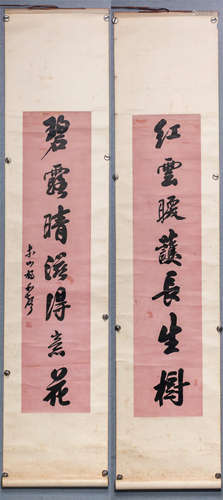 红雲暖護長生樹
碧露晴滋得意花